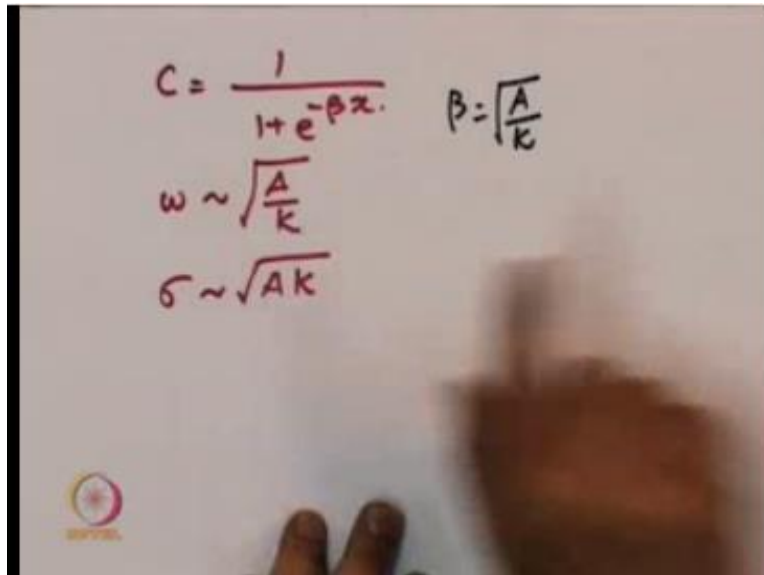 C = 1 / (1 + e^{-βx}) β = √(A/K)
ω ~ √(A/K)
σ ~ √(AK)
NPTEL